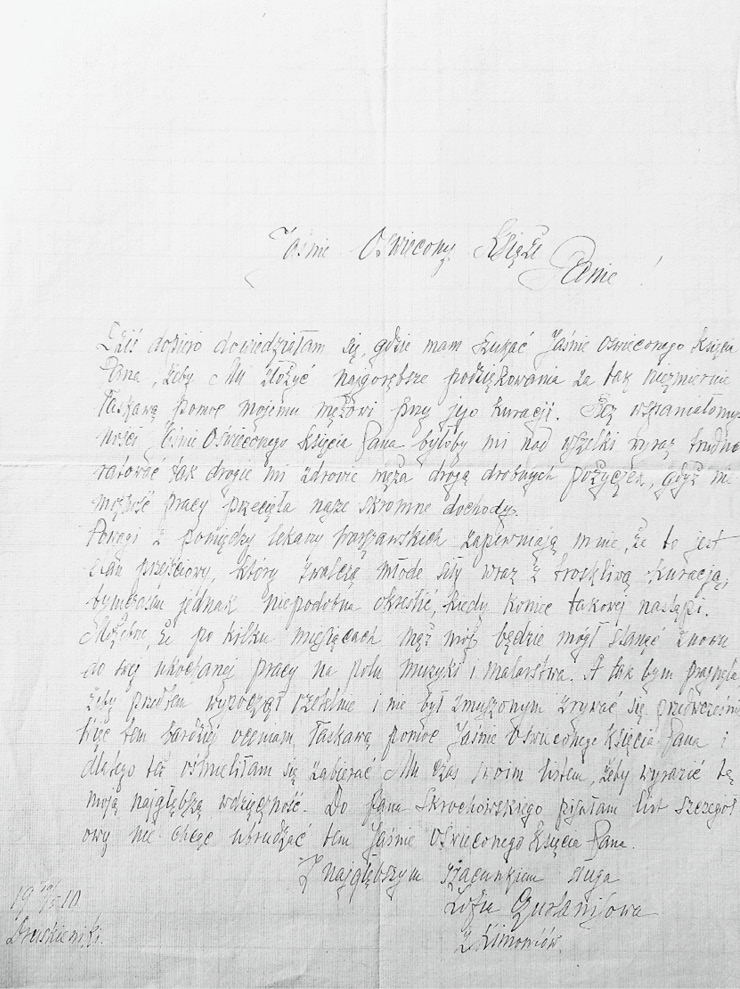 Jaśnie Oświecony Książe
Panie!
Dziś dopiero dowiedziałam się, gdzie mam szukać Jaśnie Oświeconego Księcia
Pana, żeby Mu złożyć najgorętsze podziękowania za tak niezmiernie
łaskawą pomoc mojemu mężowi przy jego kuracji. Bez wspaniałomyśl
ności Jaśnie Oświeconego Księcia Pana byłoby mi nad wszelki wyraz trudno
ratować tak drogie mi zdrowie męża drogą drobnych pożyczek, gdyż nie
możność pracy przecięła nasze skromne dochody.
Powagi z pomiędzy lekarzy warszawskich zapewniają mnie, że to jest
stan przejściowy, który zwalczą młode siły wraz z troskliwą kuracją,
tymczasem jednak niepodobna określić, kiedy koniec takowej nastąpi.
Możebne, że po kilku miesiącach mąż mój będzie mógł stanąć znowu
do swej ukochanej pracy na polu muzyki i malarstwa. A tak bym pragnęła
żeby przedtem wypoczął rzetelnie i nie był zmuszonym zrywać się przedwcześnie
tem bardziej oceniam łaskawą pomoc Jaśnie Oświeconego Księcia Pana i
dlatego też ośmieliłam się zabierać Mu czas swoim listem, żeby wyrazić tę
moją najgłębszą wdzięczność. Do Pana Skrochowskiego pisałam list szczegół
owy nie chcąc utrudzać tem Jaśnie Oświeconego Księcia Pana.
Z najgłębszym szacunkiem sługa
Zofia Czurlanisowa
z Kimontów.
Druskieniki.